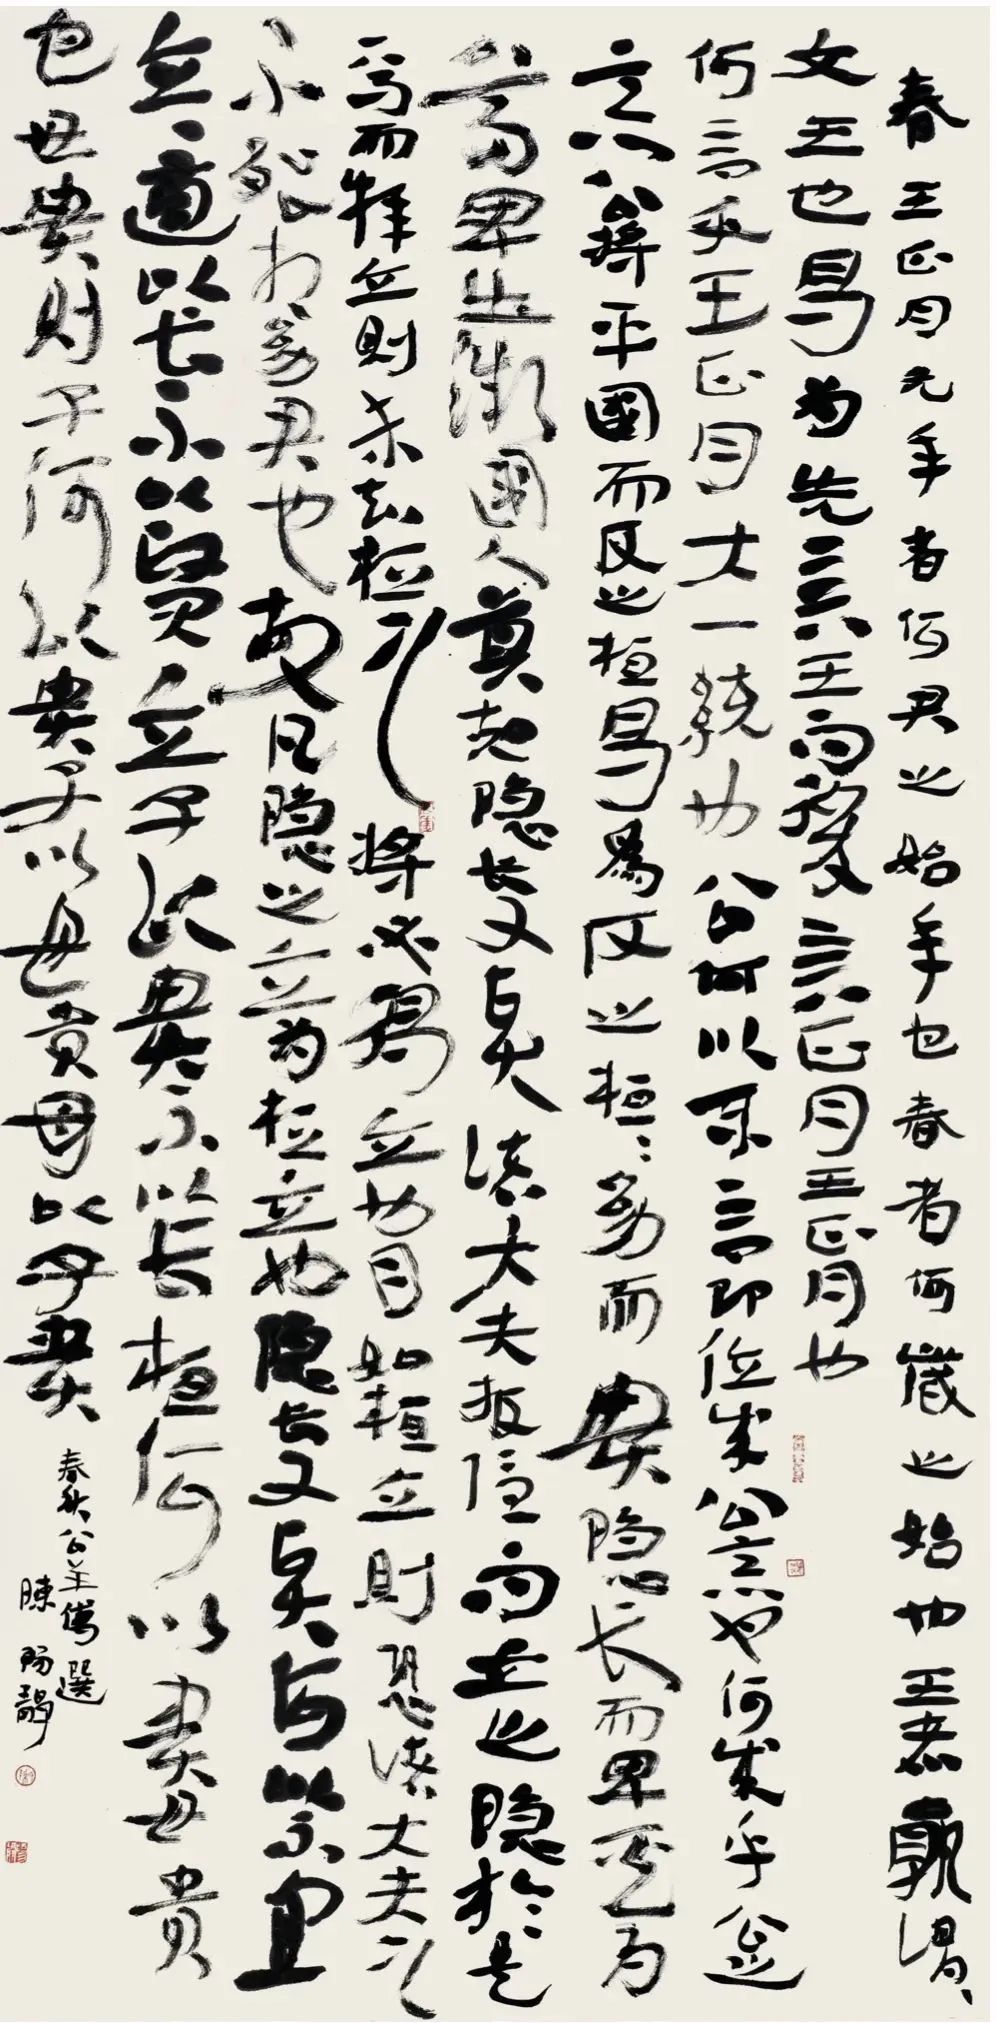 春王正月元年者何君之始年也春者何歲之始也王者孰謂、
文王也曷为先言王而後言正月王正月也
何言乎王正月大一統也公何以不言即位成公意也何成乎公之
意公將平國而反之桓曷為反之桓、幼而貴隐长而卑其为
尊卑也微國人莫知隐长又賢諸大夫扳隐而立之隐於是
焉而辞立則未知桓之將必得立也且如桓立則恐諸大夫之
不能相幼君也故凡隐之立为桓立也隐长又賢何以不宜
立、適以长不以賢立子以貴不以长桓何以貴母貴
也母貴則子何以貴子以母貴母以子貴
春秋公羊傳選
陳陽靜